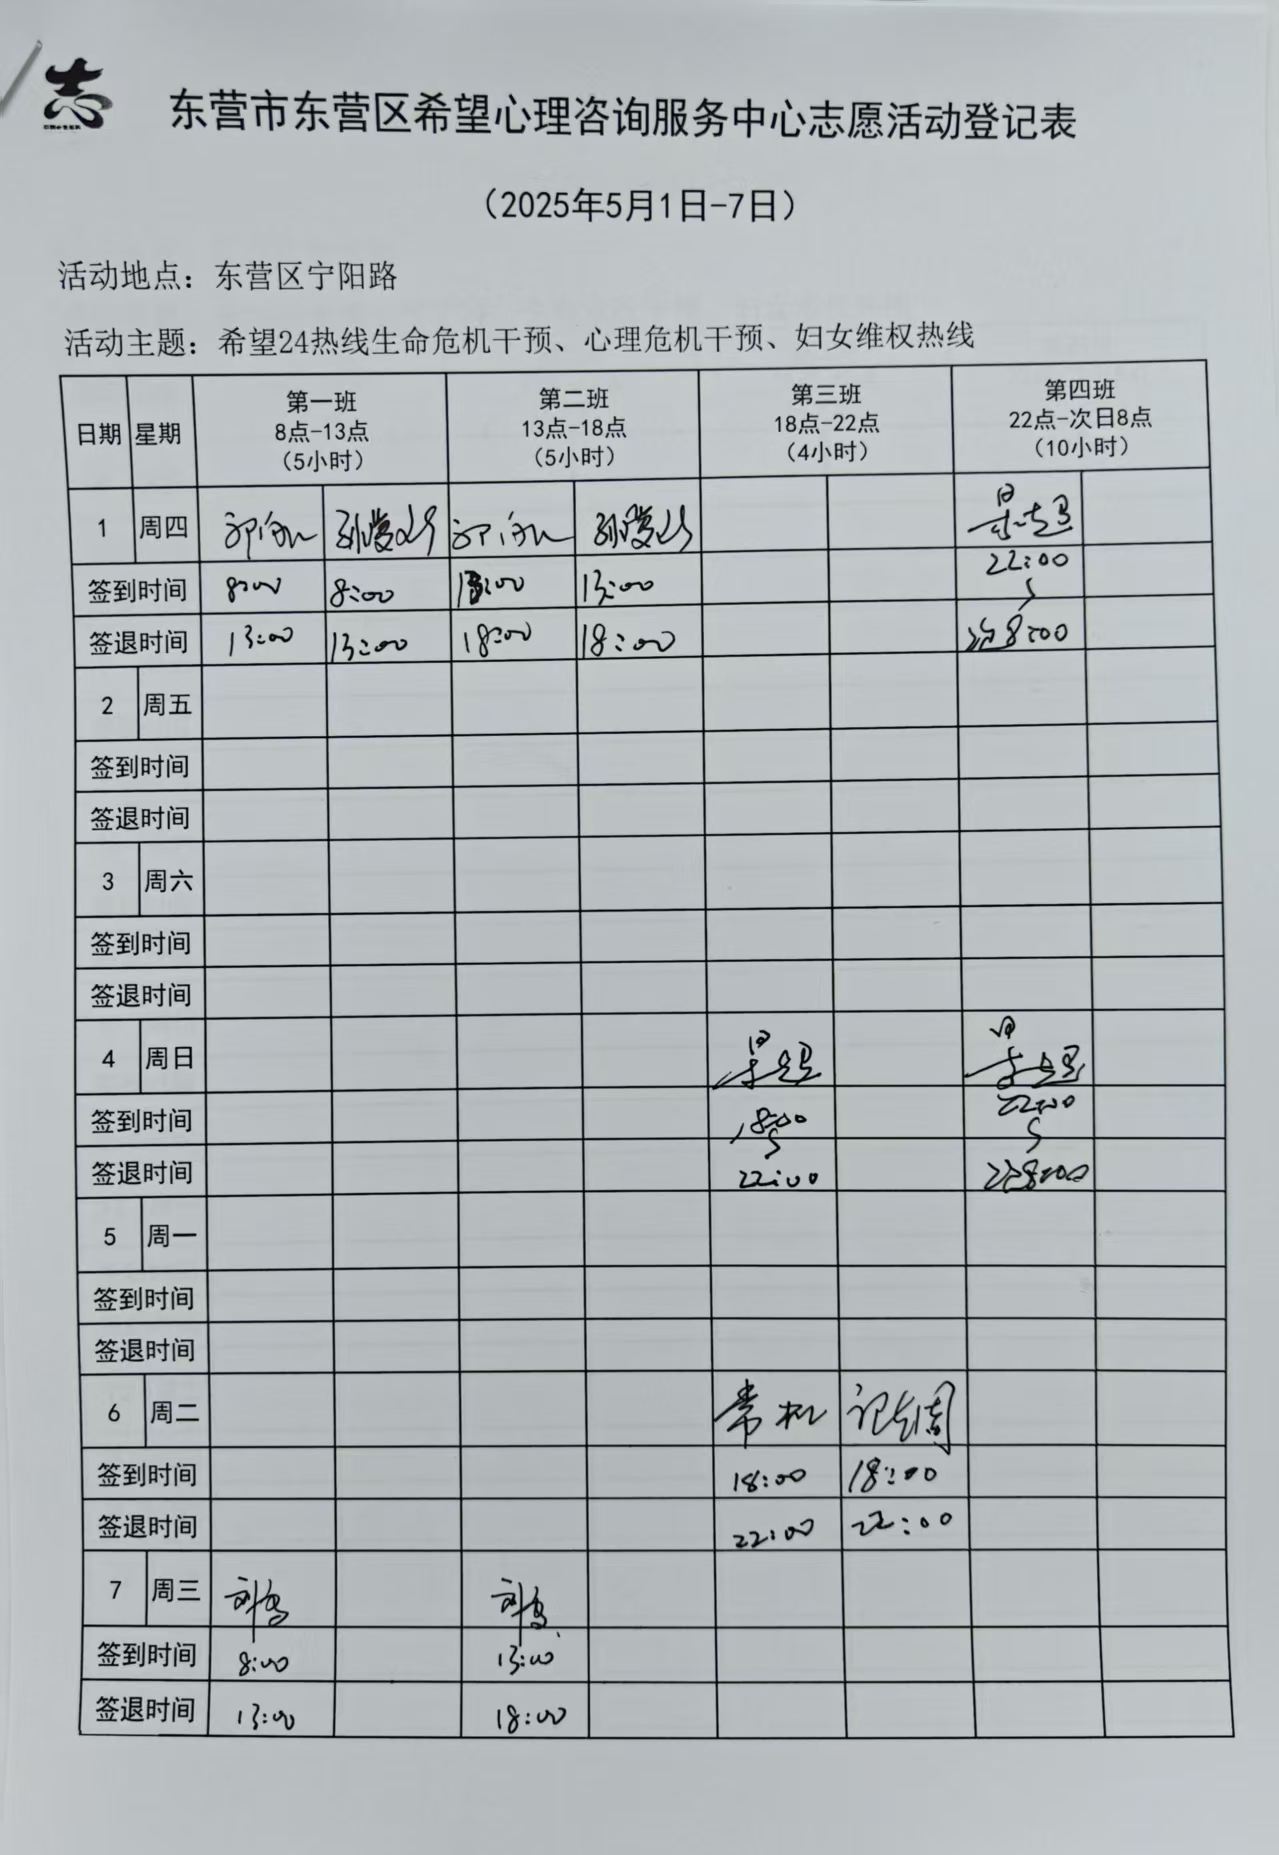 志
东营市东营区希望心理咨询服务中心志愿活动登记表
（2025年5月1日-7日）
活动地点：东营区宁阳路
活动主题：希望24热线生命危机干预、心理危机干预、妇女维权热线
日期 星期 第一班 第二班 第三班 第四班
8点-13点 13点-18点 18点-22点 22点-次日8点
（5小时） （5小时） （4小时） （10小时）
1 周四
签到时间 8:00 8:00 13:00 13:00 22:00
签退时间 13:00 13:00 18:00 18:00 8:00
2 周五
签到时间
签退时间
3 周六
签到时间
签退时间
4 周日
签到时间 18:00 22:00
签退时间 22:00 8:00
5 周一
签到时间
签退时间
6 周二 常机
签到时间 18:00 18:00
签退时间 22:00 22:00
7 周三
签到时间 8:00 13:00
签退时间 13:00 18:00